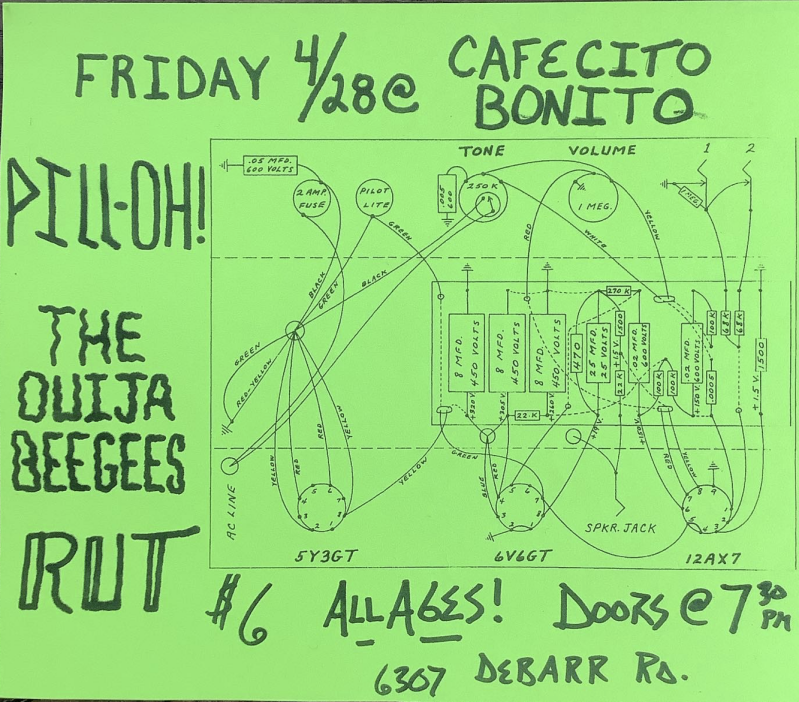 FRIDAY 4/28 @ CAFECITO
BONITO
PILL-OH!
THE
OUIJA
BEEGEES
RUT
TONE
VOLUME
1
2
.05 MFD.
600 VOLTS
2 AMP.
FUSE
PILOT
LITE
.005
600
250K
1 MEG.
1 MEG.
GREEN
BLACK
GREEN
BLACK
RED
WHITE
YELLOW
GREEN
RED-YELLOW
270 K
8 MFD.
450 VOLTS
8 MFD.
450 VOLTS
8 MFD.
450 VOLTS
470
25 MFD.
25 VOLTS
1500
+1.5 V.
22K
.02 MFD.
600 VOLTS
100K
100K
.02 MFD.
600 VOLTS
+150 V.
100K
68K
68K
.0005
1500
+1.5 V.
22 K
+150V.
YELLOW
RED
RED
YELLOW
YELLOW
GREEN
BLUE
RED
RED
YELLOW
AC LINE
SPKR. JACK
5Y3GT
6V6GT
12AX7
$6
ALL AGES!
DOORS @ 7 30
PM
6307 DEBARR RD.